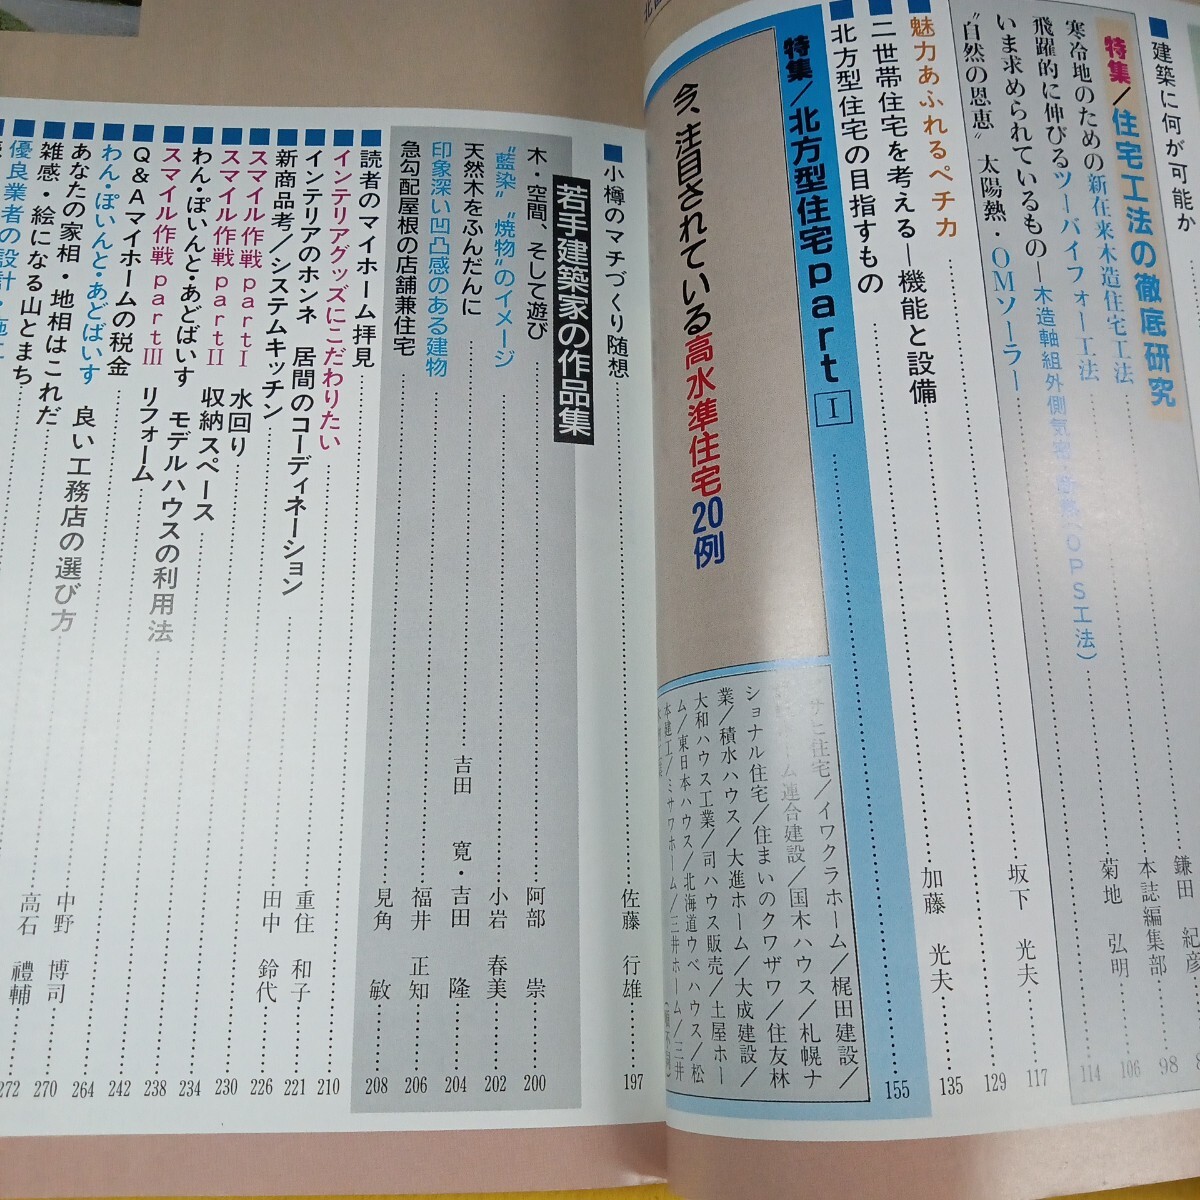 ■建築に何が可能か
鎌田 紀彦
特集/住宅工法の徹底研究
寒冷地のための新在来木造住宅工法
本誌編集部 98
飛躍的に伸びるツーバイフォー工法
106
いま求められているもの―木造軸組外側気密・断熱(OPS工法)
菊地 弘明 114
"自然の恩恵" 太陽熱・OMソーラー
坂下 光夫 117
■魅力あふれるペチカ
129
■二世帯住宅を考える―機能と設備
加藤 光夫 135
■北方型住宅の目指すもの
155
特集/北方型住宅part I
今、注目されている高水準住宅20例
住宅/イワクラホーム/梶田建設/
ム連合建設/国木ハウス/札幌ナ
ショナル住宅/住まいのクワザワ/住友林
業/積水ハウス/大進ホーム/大成建設/
大和ハウス工業/司ハウス販売/土屋ホー
ム/東日本ハウス/北海道ウベハウス/松
本建工/ミサワホーム/三井ホーム/三井
■小樽のマチづくり随想
佐藤 行雄 197
若手建築家の作品集
木・空間、そして遊び
阿部 崇 200
"藍染" "焼物"のイメージ
小岩 春美 202
天然木をふんだんに
吉田 寛・吉田 隆 204
印象深い凹凸感のある建物
福井 正知 206
急勾配屋根の店舗兼住宅
見角 敏 208
■読者のマイホーム拝見
210
■インテリアグッズにこだわりたい
重住 和子 221
■インテリアのホンネ 居間のコーディネーション
田中 鈴代 226
■新商品考/システムキッチン
230
■スマイル作戦partI 水回り
234
■スマイル作戦partII 収納スペース
238
■わん・ぽいんと・あどばいす モデルハウスの利用法
242
■スマイル作戦partIII リフォーム
264
■Q&Aマイホームの税金
■わん・ぽいんと・あどばいす 良い工務店の選び方
■あなたの家相・地相はこれだ
中野 博司 270
■雑感・絵になる山とまち
高石 禮輔 272
■優良業者の設計・施工